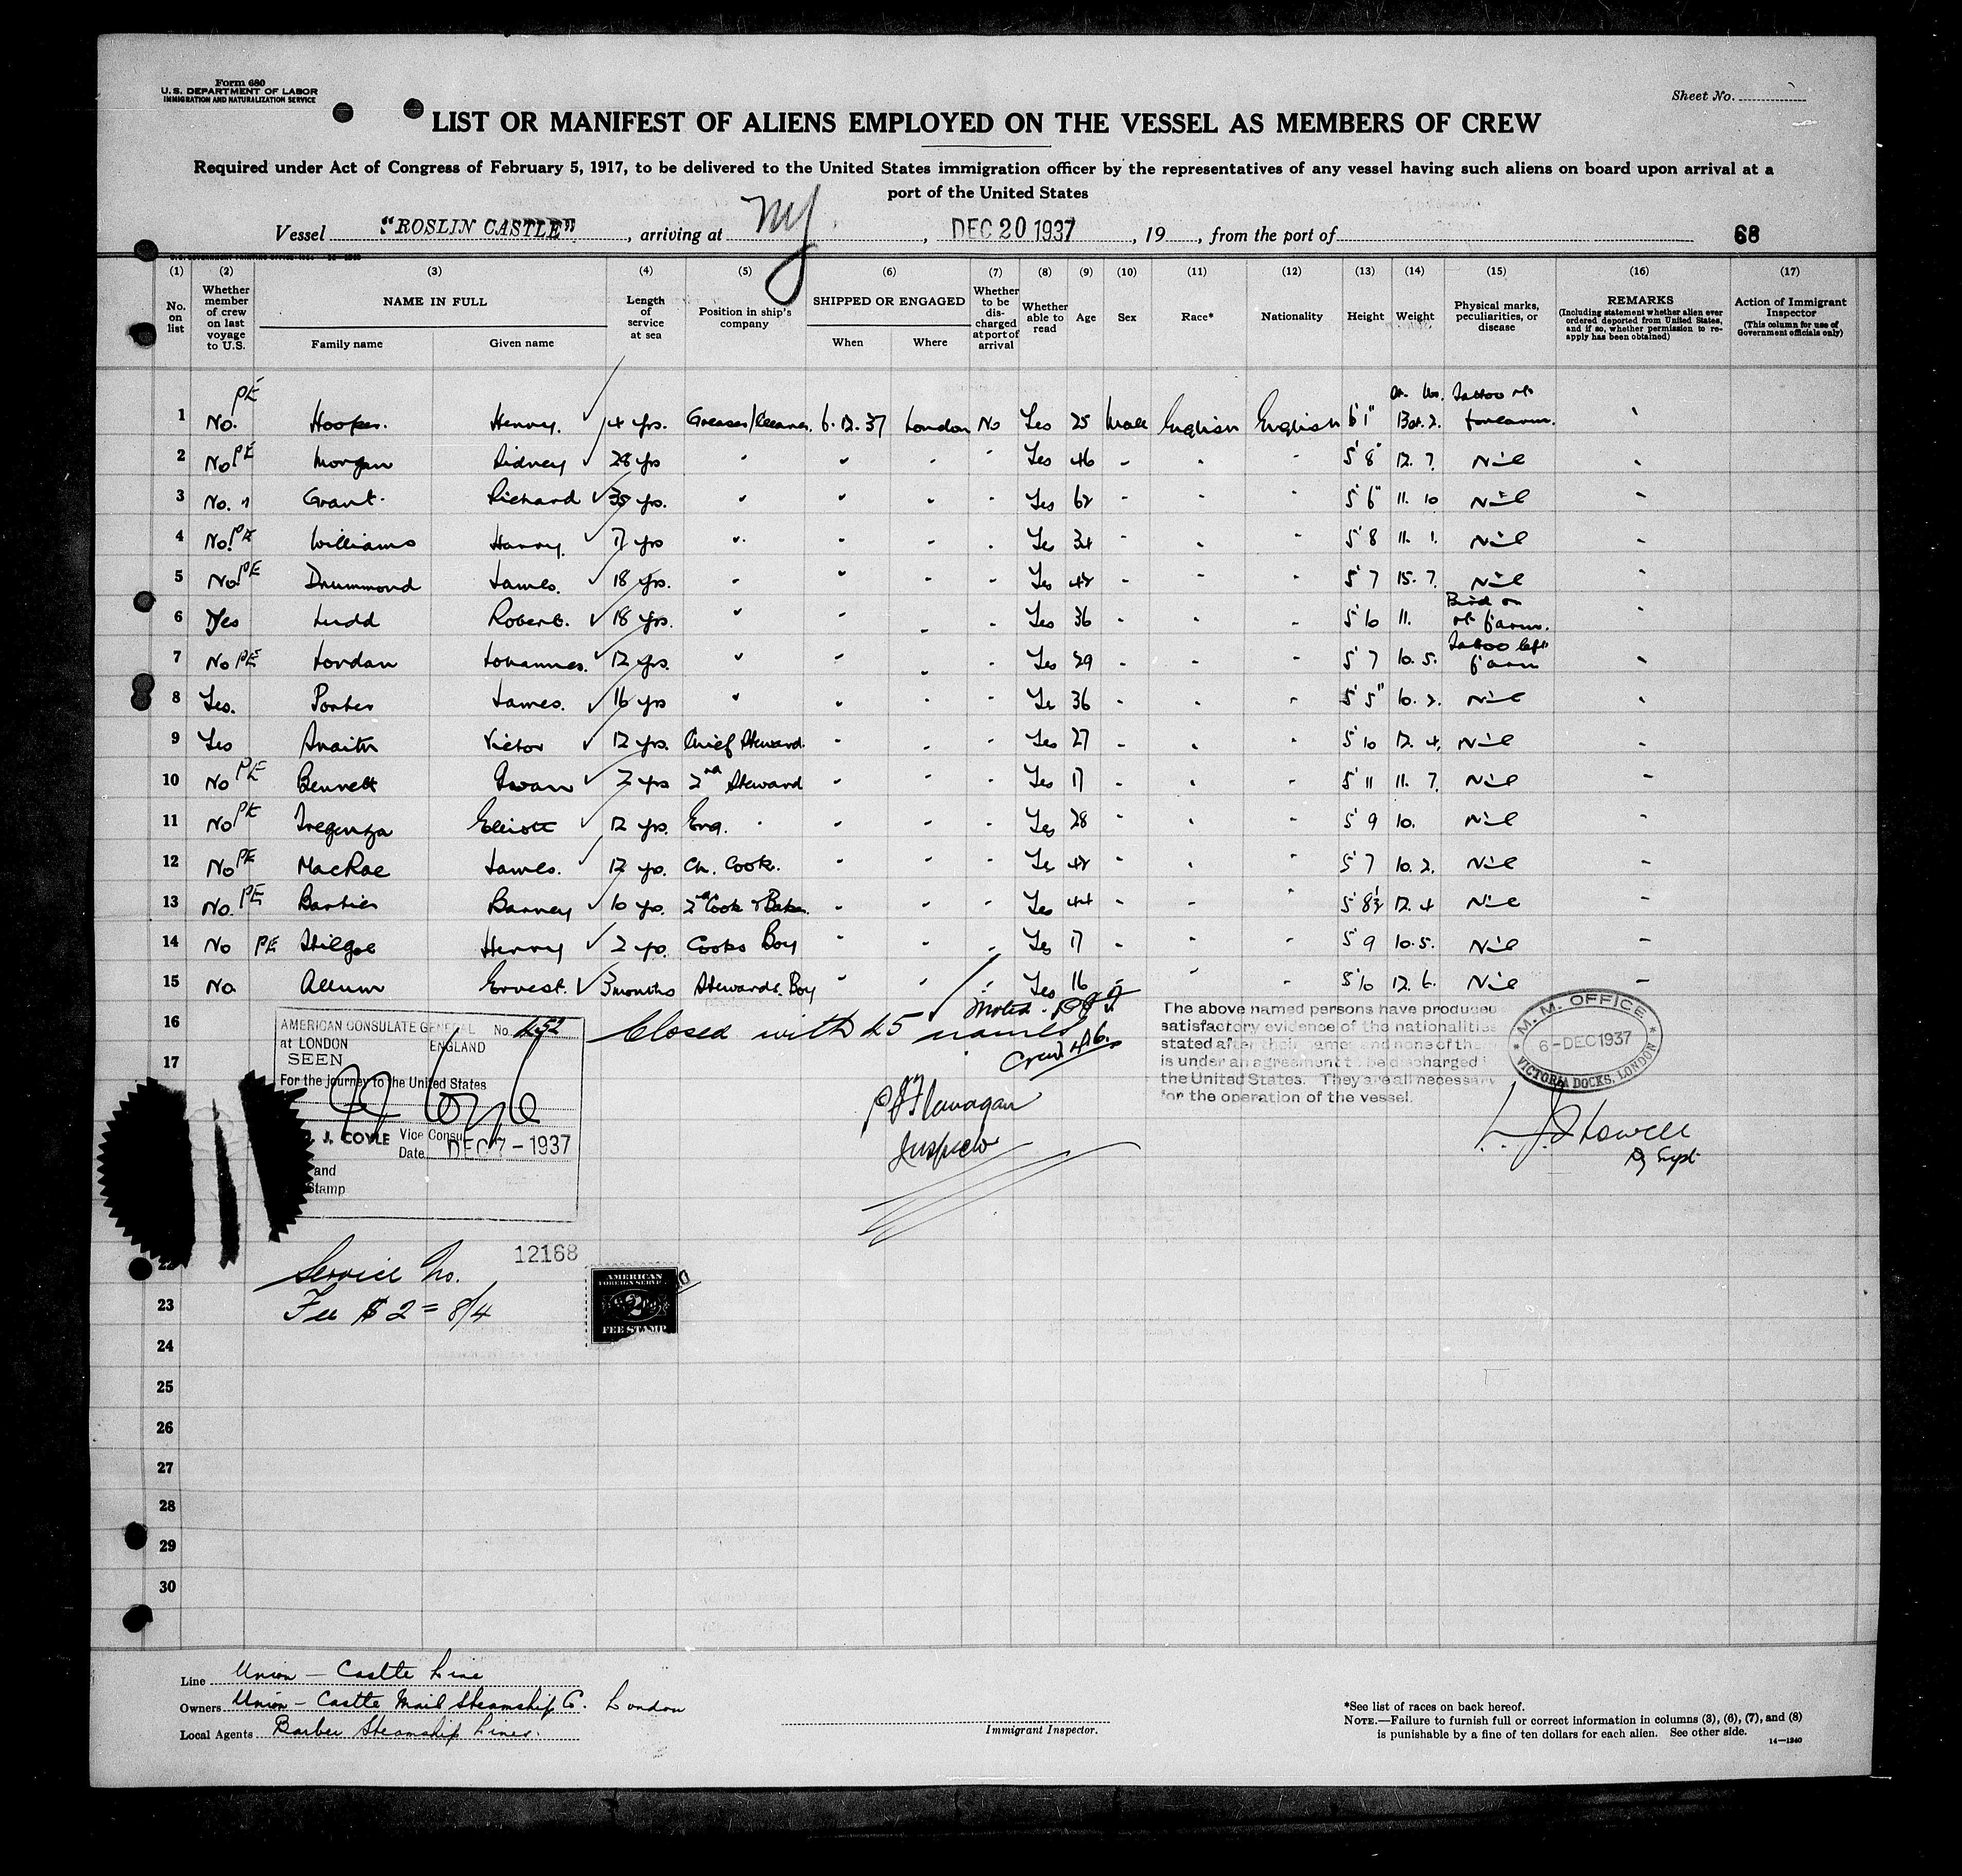 Form 680
U. S. DEPARTMENT OF LABOR
IMMIGRATION AND NATURALIZATION SERVICE
Sheet No.
LIST OR MANIFEST OF ALIENS EMPLOYED ON THE VESSEL AS MEMBERS OF CREW
Required under Act of Congress of February 5, 1917, to be delivered to the United States immigration officer by the representatives of any vessel having such aliens on board upon arrival at a
port of the United States
Vessel "ROSLIN CASTLE", arriving at NY, DEC 20 1937, 19, from the port of 68
(1) (2) (3) (4) (5) (6) (7) (8) (9) (10) (11) (12) (13) (14) (15) (16) (17)
No. on list
Whether member of crew on last voyage to U.S.
NAME IN FULL
Family name Given name
Length of service at sea
Position in ship's company
SHIPPED OR ENGAGED
When Where
Whether to be discharged at port of arrival
Whether able to read
Age
Sex
Race*
Nationality
Height
Weight
Physical marks, peculiarities, or disease
REMARKS
(Including statement whether alien ever ordered deported from United States, and if so, whether permission to reapply has been obtained)
Action of Immigrant Inspector
(This column for use of Government officials only)
1 No. PE Hooper. Henry. 4 yrs. Greaser/Cleaner. 6.12.37 London No Yes 25 Male English English 6'1" 13st. 2. Tattoo rt forearm.
2 No PE Morgan Sidney 28 yrs - - - - Yes 46 - - - 5'8" 12. 7. Nil -
3 No. " Grant. Richard 35 yrs. - - - - Yes 62 - - - 5'6" 11. 10 Nil -
4 No. PE Williams Harry. yrs - - - - Yes 34 - - - 5'8 11. 1. Nil -
5 No. PE Drummond James. 18 yrs. - - - - Yes 42 - - - 5'7 15. 7. Nil -
6 Yes Ludd Robert. 18 yrs. - - - - Yes 36 - - - 5'10 11. Bird on rt f'arm. -
7 No PE Jordan Johannes. 12 yrs. - - - - Yes 29 - - - 5'7 10. 5. Tattoo left f'arm -
8 Yes. Porter James. 16 yrs - - - - Yes 36 - - - 5'5" 10. 2. Nil -
9 Yes Victor 12 yrs. Chief Steward. - - - Yes 27 - - - 5'10 12. 4. Nil -
10 No PE Bennett 2 yrs 2nd Steward - - - Yes 17 - - - 5'11 11. 7. Nil -
11 No PE Tregenza Elliott 12 yrs. - - - - Yes 28 - - - 5'9 10. Nil -
12 No PE MacRae James. 12 yrs. Ch. Cook. - - - Yes 42 - - - 5'7 10. 2. Nil -
13 No. PE Barney 10 yrs. 2nd Cook & Baker. - - - Yes 44 - - - 5'8½ 12. 4 Nil -
14 No PE Stilgoe Henry 2 yrs. Cooks Boy - - - Yes 17 - - - 5'9 10. 5. Nil -
15 No. Allum Ernest. 3 months Stewards. Boy - - - Yes 16 - - - 5'10 12. 6. Nil -
16 Closed with 45 names
Crew 46.
17
AMERICAN CONSULATE GENERAL No. 452
at LONDON ENGLAND
SEEN
For the journey to the United States
J. COYLE Vice Consul
Date DEC 7 - 1937
and
Stamp
Flanagan
Inspector
The above named persons have produced
satisfactory evidence of the nationalities
stated after their names and none of them
is under an agreement to be discharged i
the United States. They are all necessary
for the operation of the vessel.
M. M. OFFICE
6 - DEC 1937
VICTORIA DOCKS, LONDON
Dy Supt
Service No. 12168
Fee $2 = 8/4
AMERICAN
FOREIGN SERVICE
2
FEE STAMP
22
23
24
25
26
27
28
29
30
Line Union - Castle Line
Owners Union - Castle Mail Steamship Co. London
Local Agents Barber Steamship Lines.
Immigrant Inspector.
*See list of races on back hereof.
NOTE.—Failure to furnish full or correct information in columns (3), (6), (7), and (8)
is punishable by a fine of ten dollars for each alien. See other side.
14—1240